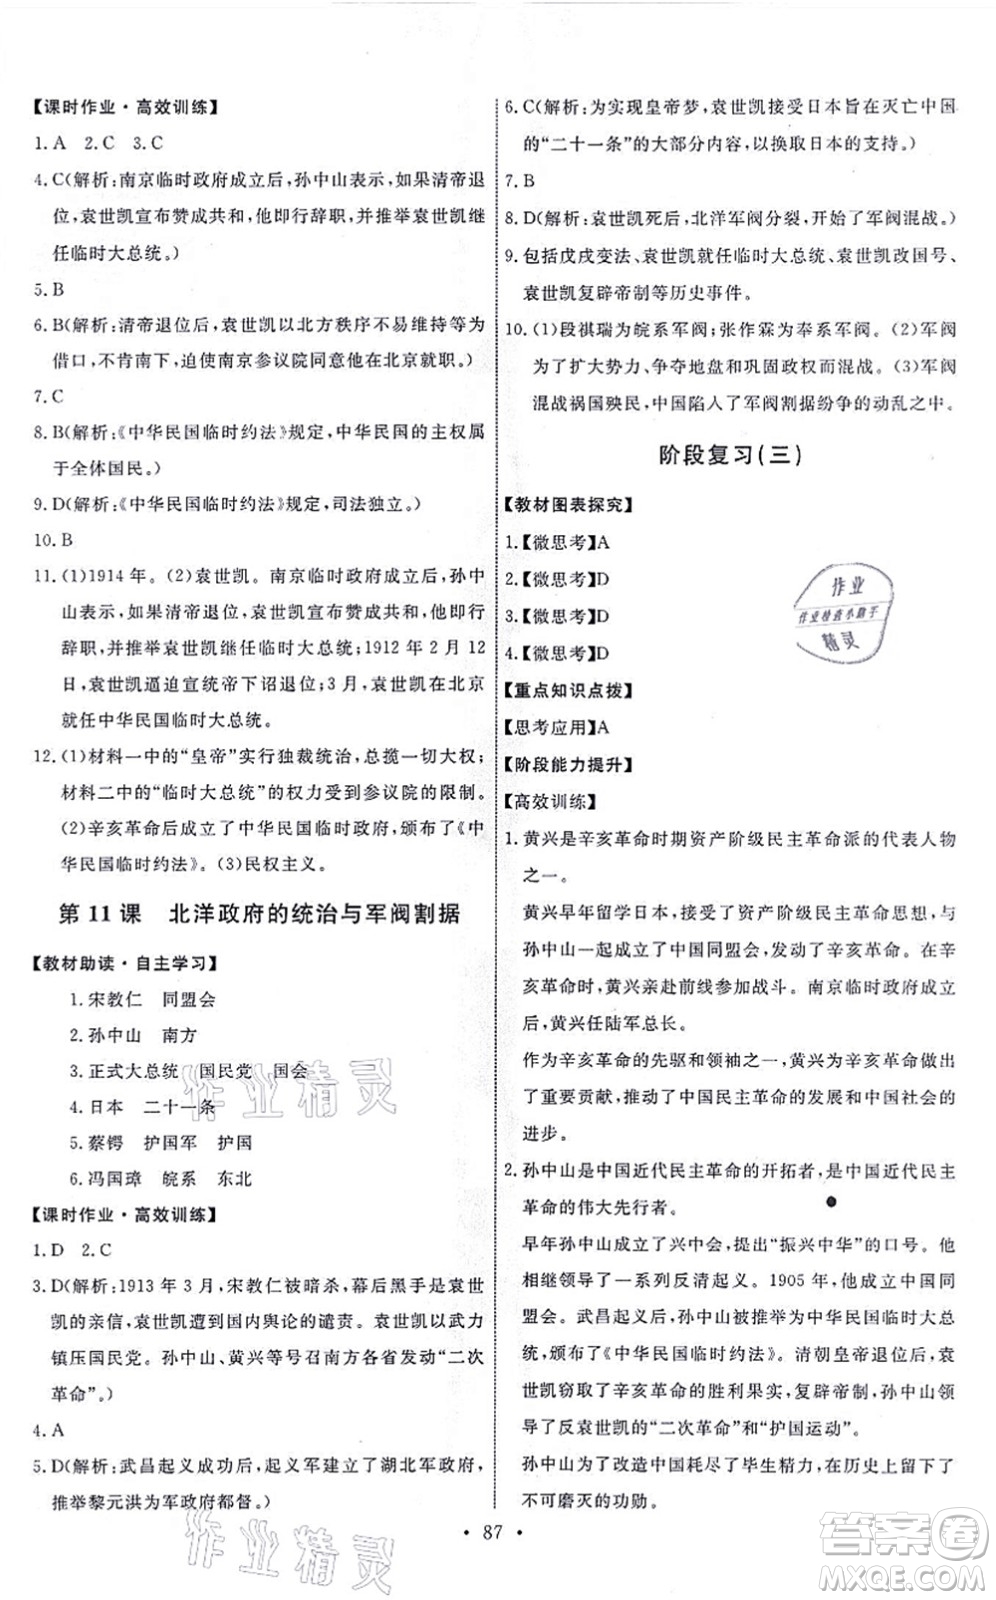 【课时作业·高效训练】
1. A  2. C  3. C
4. C(解析:南京临时政府成立后,孙中山表示,如果清帝退
位,袁世凯宣布赞成共和,他即行辞职,并推举袁世凯继
任临时大总统。)
5. B
6. B(解析:清帝退位后,袁世凯以北方秩序不易维持等为
借口,不肯南下,迫使南京参议院同意他在北京就职。)
7. C
8. B(解析:《中华民国临时约法》规定,中华民国的主权属
于全体国民。)
9. D(解析:《中华民国临时约法》规定,司法独立。)
10. B
11. (1)1914 年。(2)袁世凯。南京临时政府成立后,孙中
山表示,如果清帝退位,袁世凯宣布赞成共和,他即行
辞职,并推举袁世凯继任临时大总统;1912 年 2 月 12
日,袁世凯逼迫宣统帝下诏退位;3 月,袁世凯在北京
就任中华民国临时大总统。
12. (1)材料一中的“皇帝”实行独裁统治,总揽一切大权;
材料二中的“临时大总统”的权力受到参议院的限制。
(2)辛亥革命后成立了中华民国临时政府,颁布了《中
华民国临时约法》。(3)民权主义。
第 11 课  北洋政府的统治与军阀割据
【教材助读·自主学习】
1. 宋教仁  同盟会
2. 孙中山  南方
3. 正式大总统  国民党  国会
4. 日本  二十一条
5. 蔡锷  护国军  护国
6. 冯国璋  皖系  东北
【课时作业·高效训练】
1. D  2. C
3. D(解析:1913 年 3 月,宋教仁被暗杀,幕后黑手是袁世
凯的亲信,袁世凯遭到国内舆论的谴责。袁世凯以武力
镇压国民党。孙中山、黄兴等号召南方各省发动“二次
革命”。)
4. A
5. D(解析:武昌起义成功后,起义军建立了湖北军政府,
推举黎元洪为军政府都督。)
6. C(解析:为实现皇帝梦,袁世凯接受日本旨在灭亡中国
的“二十一条”的大部分内容,以换取日本的支持。)
7. B
8. D(解析:袁世凯死后,北洋军阀分裂,开始了军阀混战。)
9. 包括戊戌变法、袁世凯就任临时大总统、袁世凯改国号、
袁世凯复辟帝制等历史事件。
10. (1)段祺瑞为皖系军阀;张作霖为奉系军阀。(2)军阀
为了扩大势力、争夺地盘和巩固政权而混战。(3)军阀
混战祸国殃民,中国陷入了军阀割据纷争的动乱之中。
阶段复习(三)
【教材图表探究】
1.【微思考】A
2.【微思考】D
3.【微思考】D
4.【微思考】D
【重点知识点拨】
【思考应用】A
【阶段能力提升】
【高效训练】
1. 黄兴是辛亥革命时期资产阶级民主革命派的代表人物
之一。
黄兴早年留学日本,接受了资产阶级民主革命思想,与
孙中山一起成立了中国同盟会,发动了辛亥革命。在辛
亥革命中,黄兴亲赴前线参加战斗。南京临时政府成立
后,黄兴任陆军总长。
作为辛亥革命的先驱和领袖之一,黄兴为辛亥革命作出
了重大贡献,推动了中国民主革命的发展和中国社会的
进步。
2. 孙中山是中国近代民主革命的开拓者,是中国近代民主
革命的伟大先行者。
早年孙中山成立了兴中会,提出“振兴中华”的口号。他
相继领导了一系列反清起义。1905 年,他创建了中国同
盟会。武昌起义后,孙中山被推举为中华民国临时大总
统,颁布了《中华民国临时约法》。清朝皇帝退位后,袁
世凯窃取了辛亥革命的胜利果实,复辟帝制,孙中山领
导了反袁世凯的“二次革命”和“护国运动”。
孙中山为了改造中国耗尽了毕生精力,为中国立下了
不可磨灭的功勋。
• 87 •
作业
作业检查小助手
精灵
作业精灵
作业精灵
答案卷
MXQE.COM